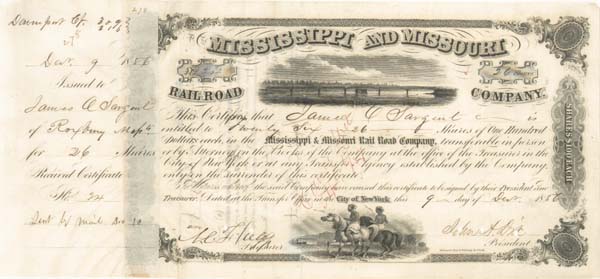 Davenport Ct.
Dec 9 1856
Issued to
James C Sargent
of Roxbury
for 26 Shares
Received Certificate
Sent by mail Dec 10
MISSISSIPPI AND MISSOURI
RAILROAD
COMPANY.
This Certifies that James C Sargent is
entitled to Twenty Six 26 Shares of One Hundred
Dollars each, in the Mississippi & Missouri Rail Road Company, transferable in person
or by Attorney on the Books of the Company at the office of the Treasurer in the
City of New York or at any Transfer Agency established by the Company,
only on the surrender of this certificate.
In Witness whereof the said Company have caused this certificate to be signed by their President and
Treasurer. Dated at the Transfer Office in the City of New York, this 9 day of Dec 1856
Treasurer
John A. Dix
President